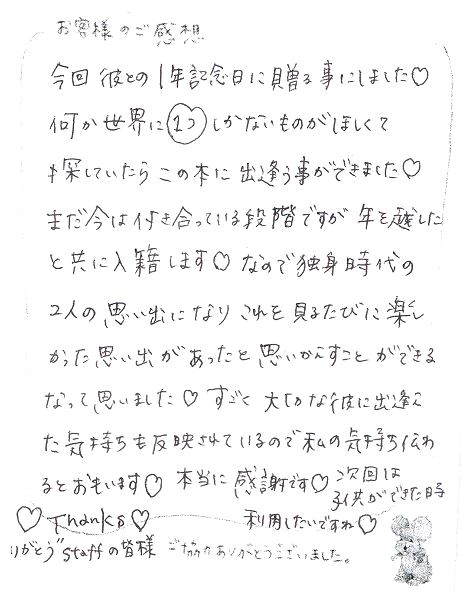 お客様のご感想
今回 彼との1年記念日に贈る事にしました♡
何か世界に1つしかないものがほしくて
探していたら この本に 出逢う事ができました♡
まだ今は付き合っている段階ですが 年を越した
と共に入籍します♡ なので独身時代の
2人の思い出になり これを見るたびに楽し
かった思い出があったと思いかえすことができる
なって思いました♡ すごく 大切な彼に出逢え
た気持ちも反映されているので私の気持ち伝わ
るとおもいます♡ 本当に感謝です♡ 次回は
子供ができた時
♡ Thanks ♡ 利用したいですね♡
りがとう"staffの皆様 ご協力ありがとうございました。